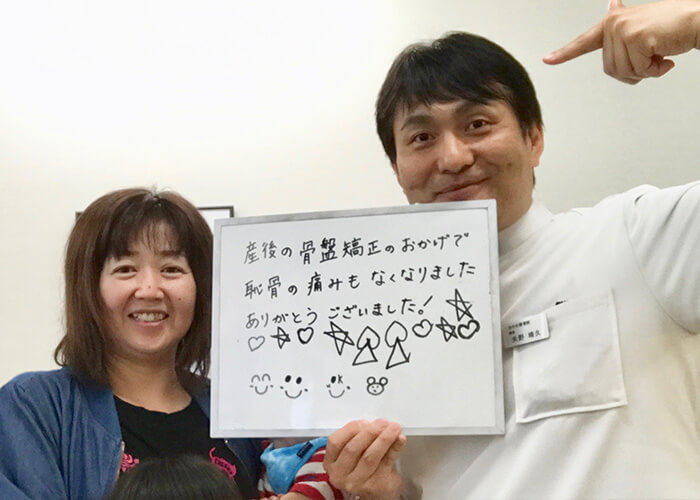 産後の骨盤矯正のおかげで
恥骨の痛みもなくなりました
ありがとうございました!
矢野